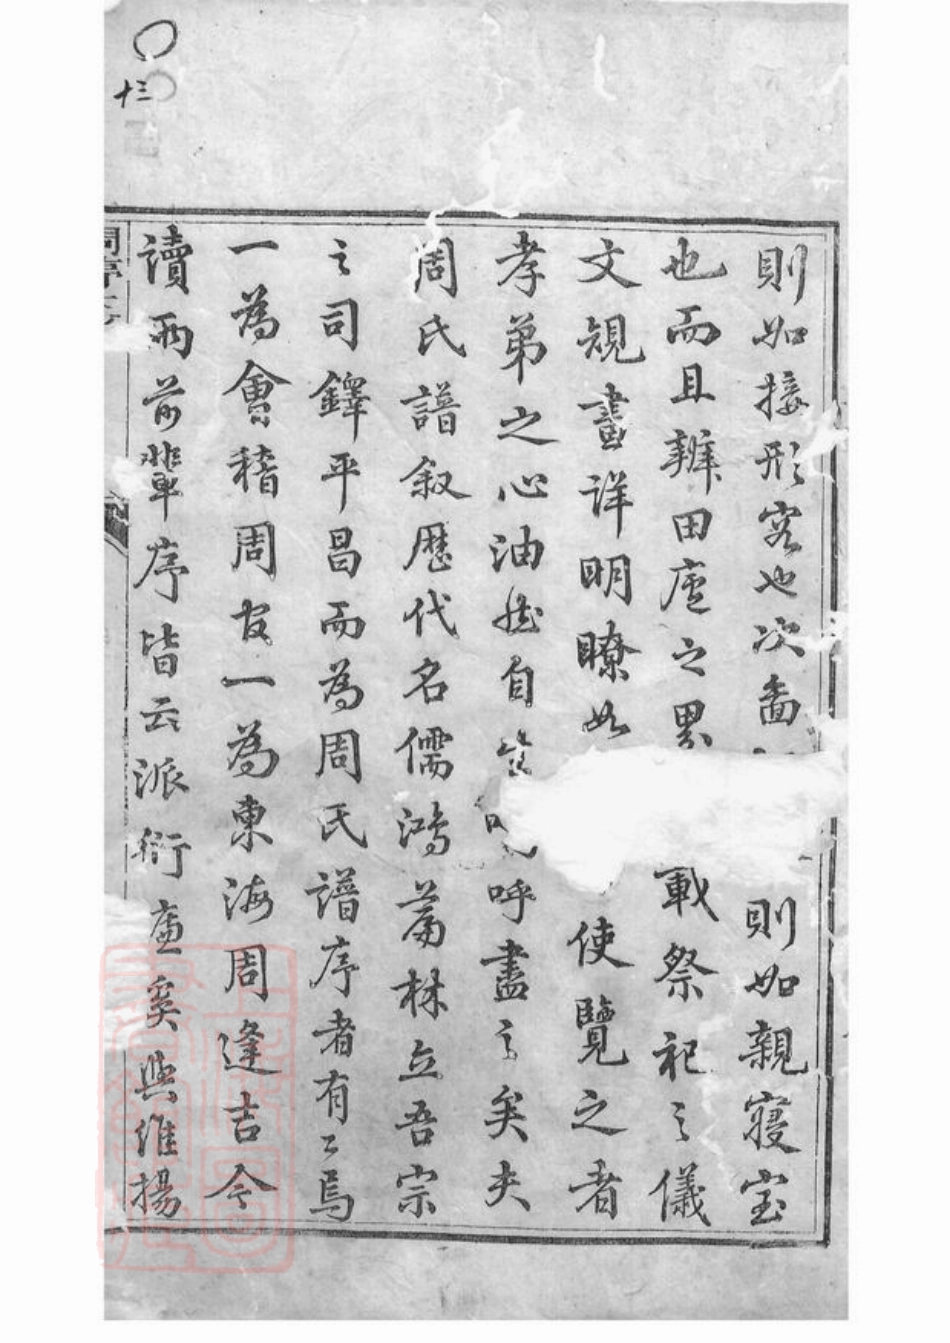 十三
則如接形容也次啚則如親寝室
也而且辨田廬之界載祭祀之儀
文規畫詳明瞭如使覽之者
孝弟之心油然自呼盡之矣夫
周氏譜叙歷代名儒鴻篇林立吾宗
之司鐸平昌而為周氏譜序者有二焉
一為會稽周一為東海周逢吉今
讀兩前輩序皆云派衍與維揚